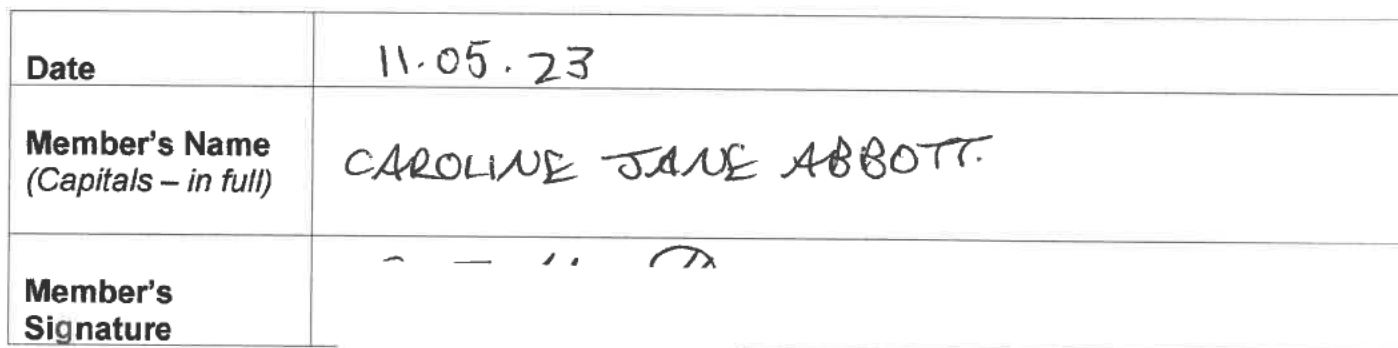 Date
11.05.23
Member's Name
(Capitals – in full)
CAROLINE JANE ABBOTT.
Member's
Signature